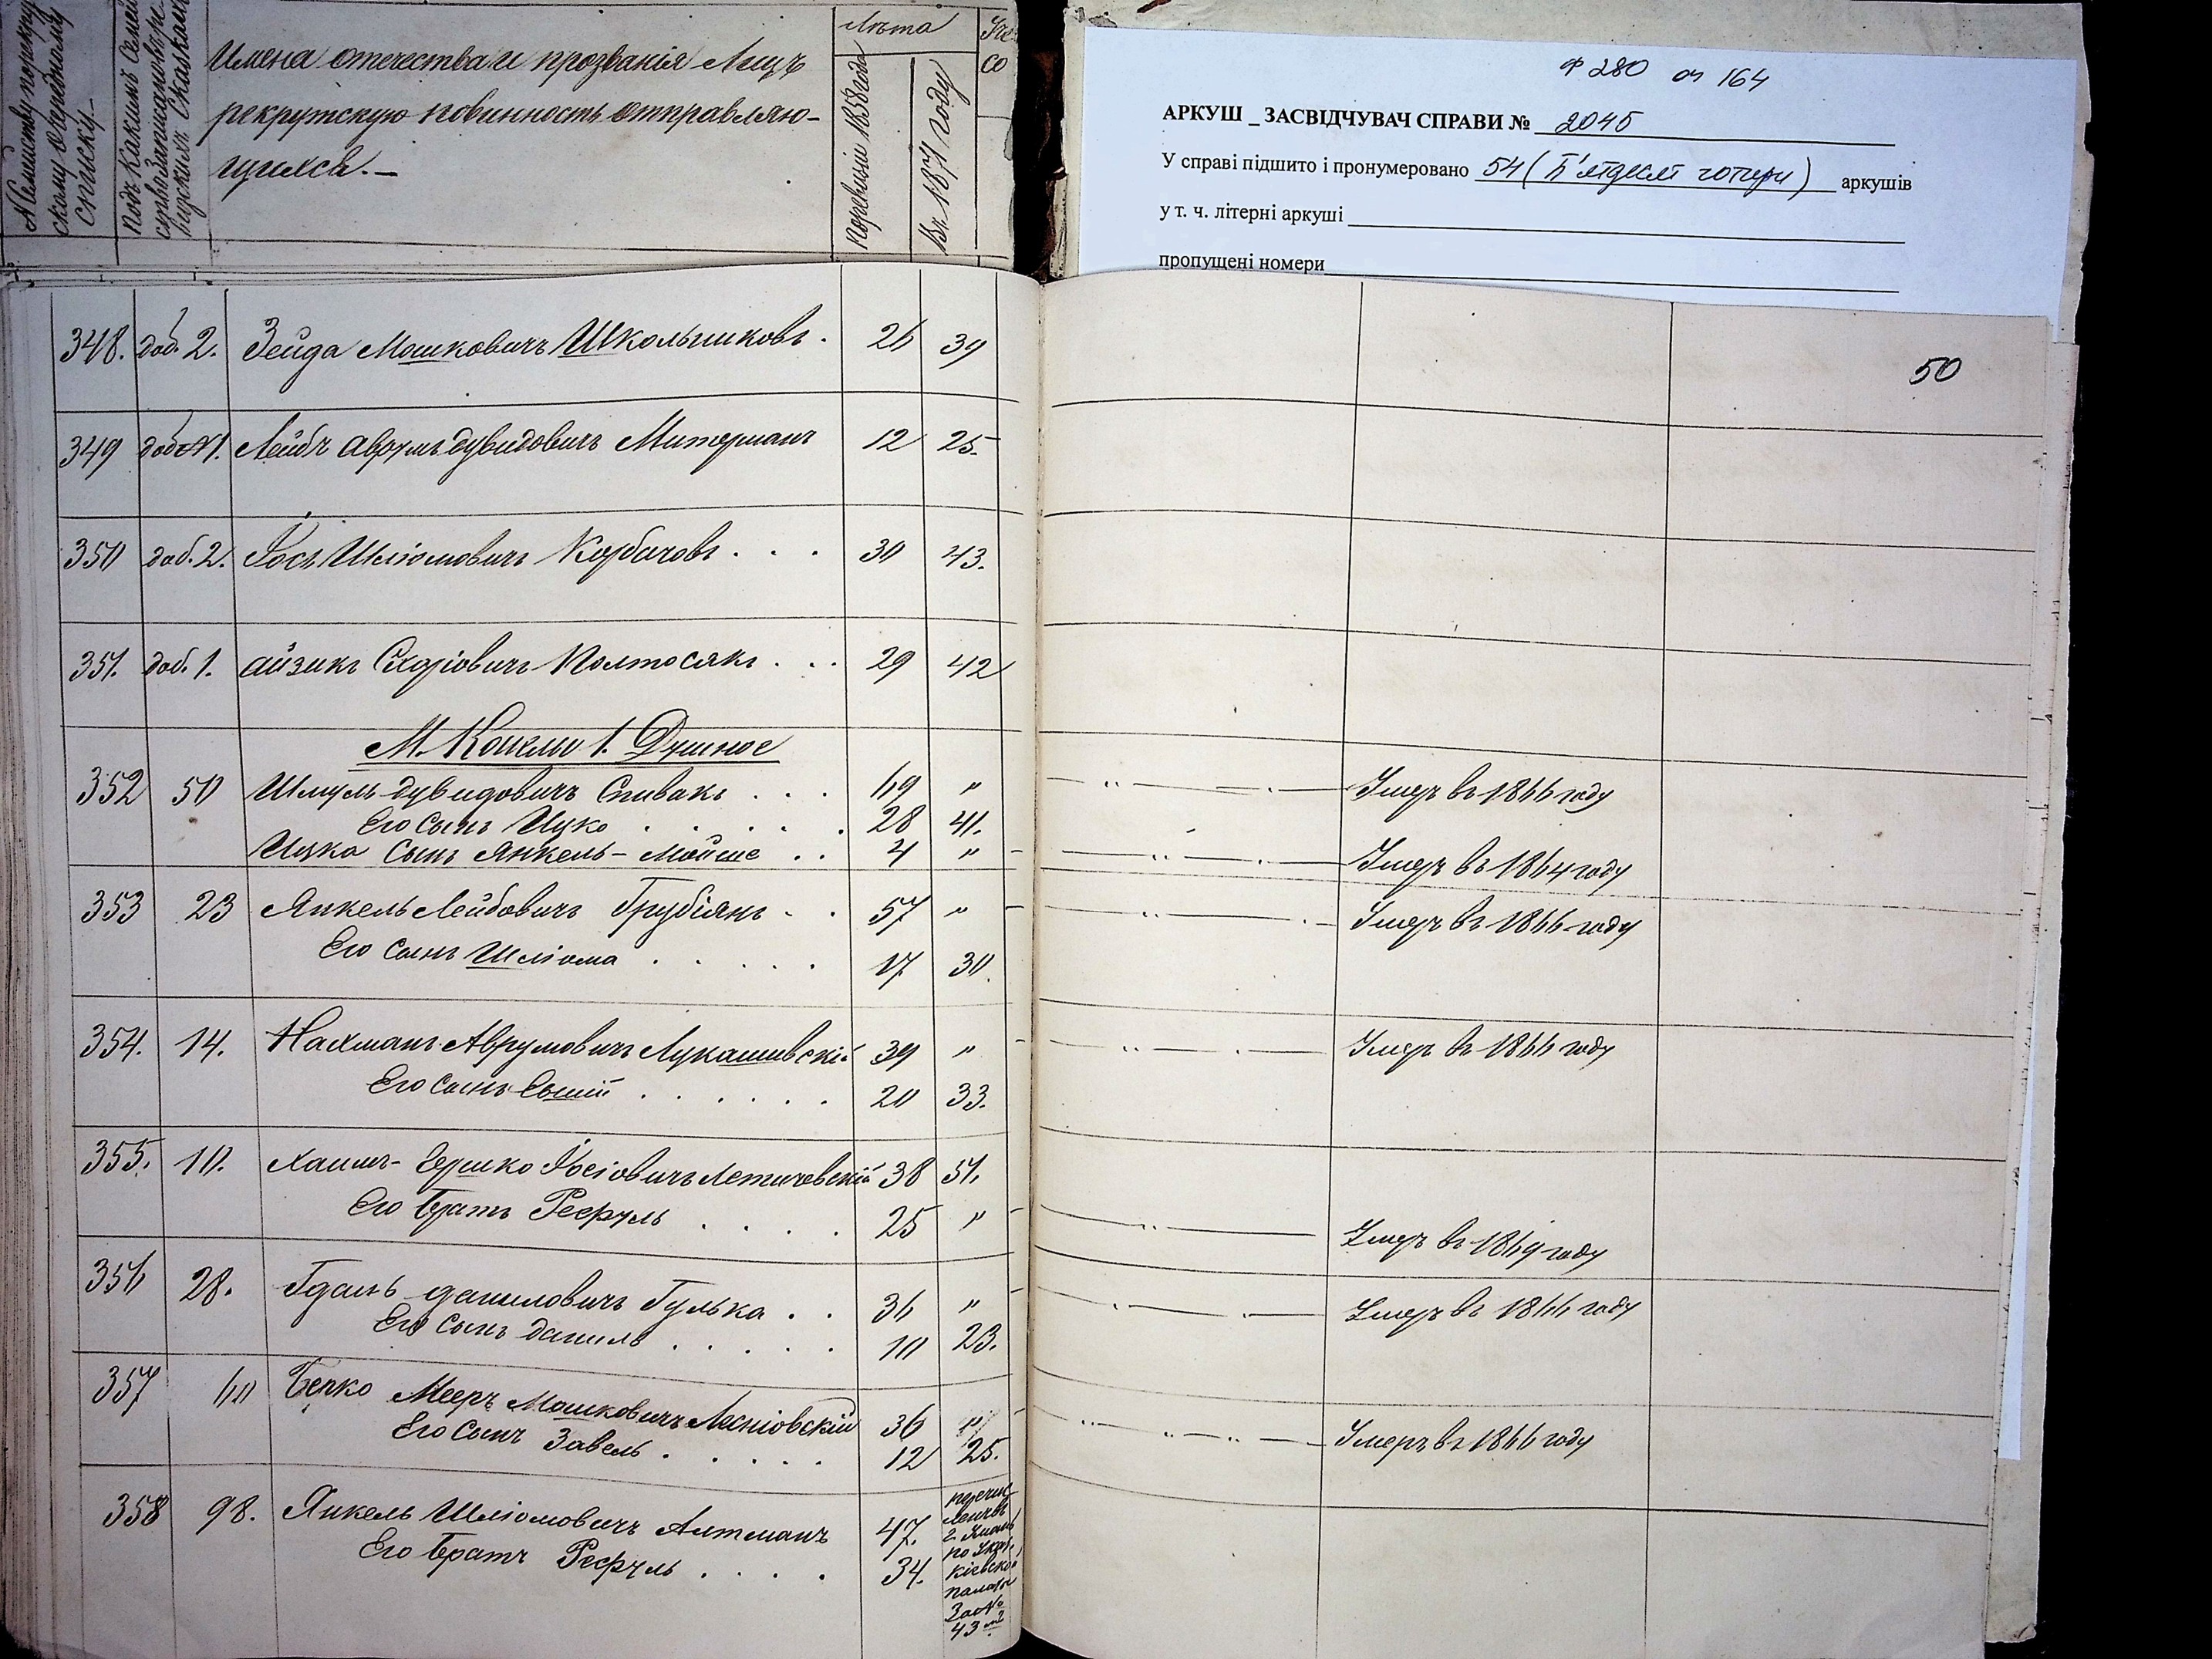 № семейству по рекрут
скому очередному
списку.—
Подъ какимъ семей
Имена отчества и прозванія Лицъ
рекрутскую повинность отправляю-
щихся.—
Лѣта
По ревизіи 1858 года
Въ 1871 году
ф 280 оп 164
АРКУШ _ ЗАСВІДЧУВАЧ СПРАВИ № 2045
У справі підшито і пронумеровано 54 (П'ятдесят чотири) аркушів
у т. ч. літерні аркуші
пропущені номери
50
348. доб. 2. Зейда Мошковичъ Школьниковъ. 26 39
349 доб №1. Лейбъ Аврумъ Дувидовичъ Митерманъ 12 25.
350 доб. 2. Іось Шліомовичъ Корбачовъ . . . 30 43.
351. доб. 1. Айзикъ Схаріовичъ Полтосякъ . . . 29 42
М. Кошлы 1. Душное
352 50 Шмуль Дувидовичъ Спивакъ . . . 69 " Умеръ въ 1866 году
Его сынъ Ицко . . . . . 28 41.
Ицка сынъ Янкель-Мойше . . 4 " Умеръ въ 1864 году
353 23 Янкель Лейбовичъ Грубіянъ . . 57 " Умеръ въ 1866 году
Его сынъ Шліома . . . . . 17 30.
354. 14. Нахманъ Аврумовичъ Лукашивскій 39 " Умеръ въ 1866 году
Его сынъ . . . . . . 20 33.
355. 10. Хаимъ-Гершко Іосіовичъ Летичевскій 38 51.
Его братъ Рефуль . . . . 25 " Умеръ въ 1869 году
356 28. Гдаль Даниловичъ Гулька . . 36 " Умеръ въ 1866 году
Его сынъ Даниль . . . . . 10 23.
357 60 Берко Мееръ Мошковичъ Лесніовскій 36 " Умеръ въ 1866 году
Его сынъ Завель . . . . . 12 25.
358 98. Янкель Шліомовичъ Алтманъ 47.
Его братъ Рефуль . . . . 34.
перечис
ленъ въ
г. Умань
по Указ.
Кіевской
палаты
За №
43 м